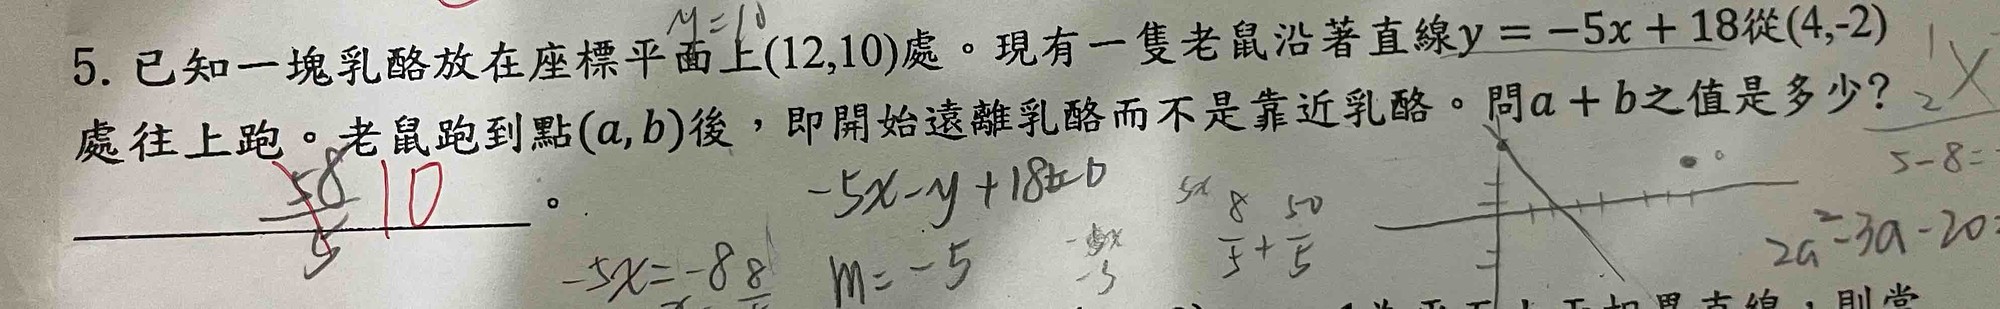 y=10
5. 已知一塊乳酪放在座標平面上(12,10)處。現有一隻老鼠沿著直線y = −5x + 18從(4,-2)
處往上跑。老鼠跑到點(a, b)後，即開始遠離乳酪而不是靠近乳酪。問a + b之值是多少?
58
5
10
。
-5x-y+18=0
5x
8/5 + 50/5
5-8=
2a²-3a-20=
-5x=-8
8
m=-5